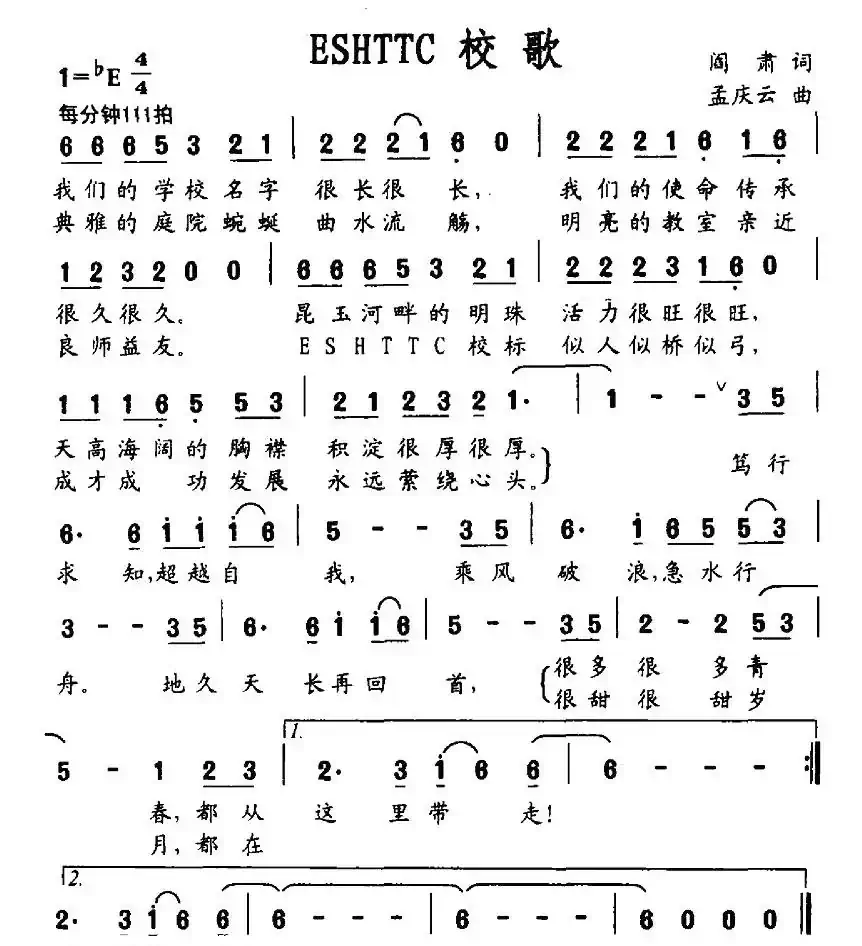 ESHTTC 校 歌
1=♭E 4/4
阎 肃 词
孟庆云 曲
每分钟111拍
6 6 6 5 3 2 1 | 2 2 2 1 6 0 | 2 2 2 1 6 1 6 |
我们的学校名字 很长很 长, 我们的使命传承
典雅的庭院蜿蜒 曲水流 觞, 明亮的教室亲近
1 2 3 2 0 0 | 6 6 6 5 3 2 1 | 2 2 2 3 1 6 0 |
很久很久。 昆玉河畔的明珠 活力很旺很旺,
良师益友。 ESHTTC校标 似人似桥似弓,
1 1 1 6 5 5 3 | 2 1 2 3 2 1· | 1 - - ∨ 3 5 |
天高海阔的胸襟 积淀很厚很厚。 笃行
成才成 功发展 永远萦绕心头。
6· 6 i i i 6 | 5 - - 3 5 | 6· i 6 5 5 3 |
求 知,超越自 我, 乘风 破 浪,急水行
3 - - 3 5 | 6· 6 i i 6 | 5 - - 3 5 | 2 - 2 5 3 |
舟。 地久天 长再回 首, 很多很 多青
很甜很 甜岁
1.
5 - 1 2 3 | 2· 3 i 6 6 | 6 - - - :||
春, 都从 这 里带 走!
月, 都在
2.
2· 3 i 6 6 | 6 - - - | 6 - - - | 6 0 0 0